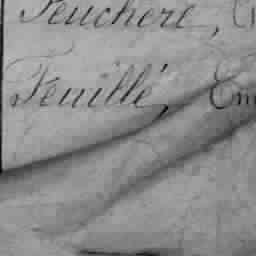 Feuchère,
Feuillé, Em